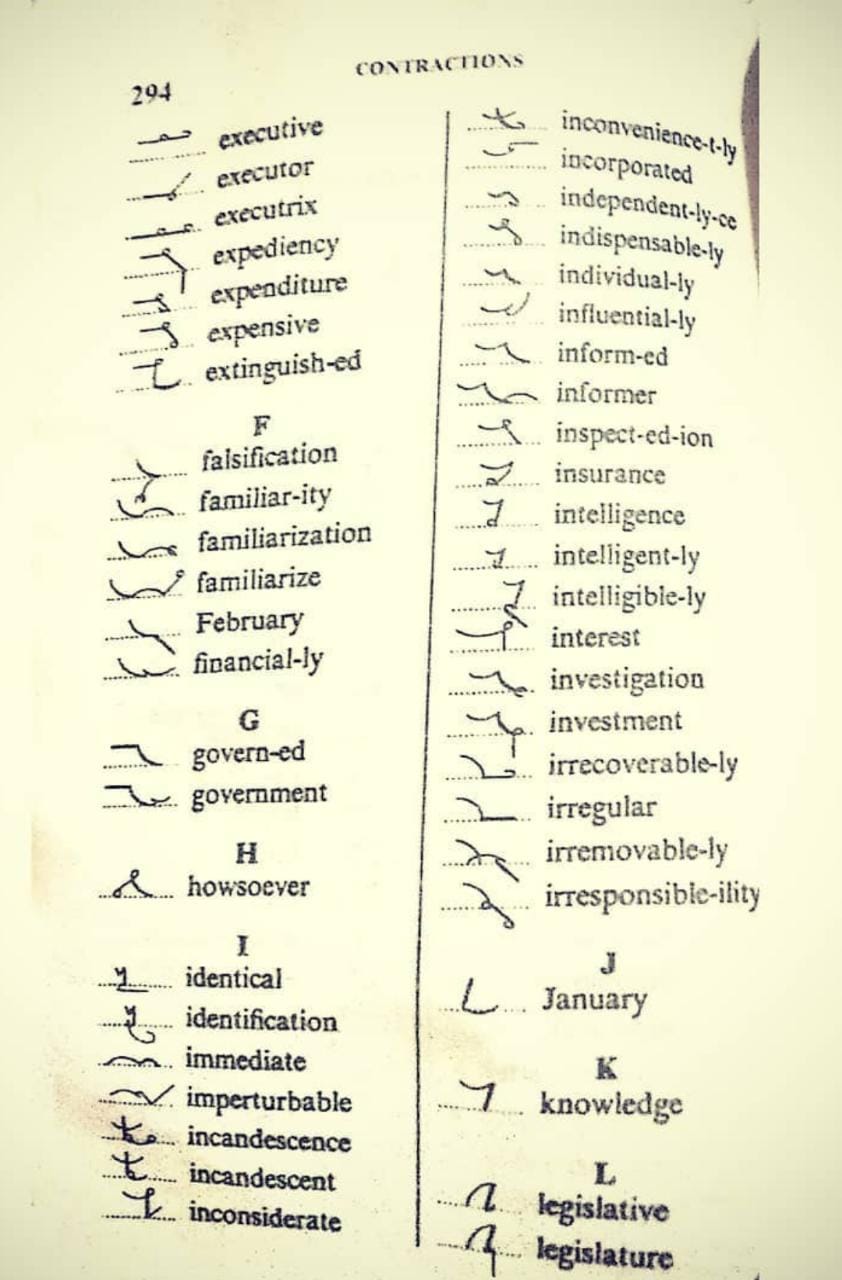 294
CONTRACTIONS
executive
executor
executrix
expediency
expenditure
expensive
extinguish-ed
F
falsification
familiar-ity
familiarization
familiarize
February
financial-ly
G
govern-ed
government
H
howsoever
I
identical
identification
immediate
imperturbable
incandescence
incandescent
inconsiderate
inconvenience-t-ly
incorporated
independent-ly-ce
indispensable-ly
individual-ly
influential-ly
inform-ed
informer
inspect-ed-ion
insurance
intelligence
intelligent-ly
intelligible-ly
interest
investigation
investment
irrecoverable-ly
irregular
irremovable-ly
irresponsible-ility
J
January
K
knowledge
L
legislative
legislature